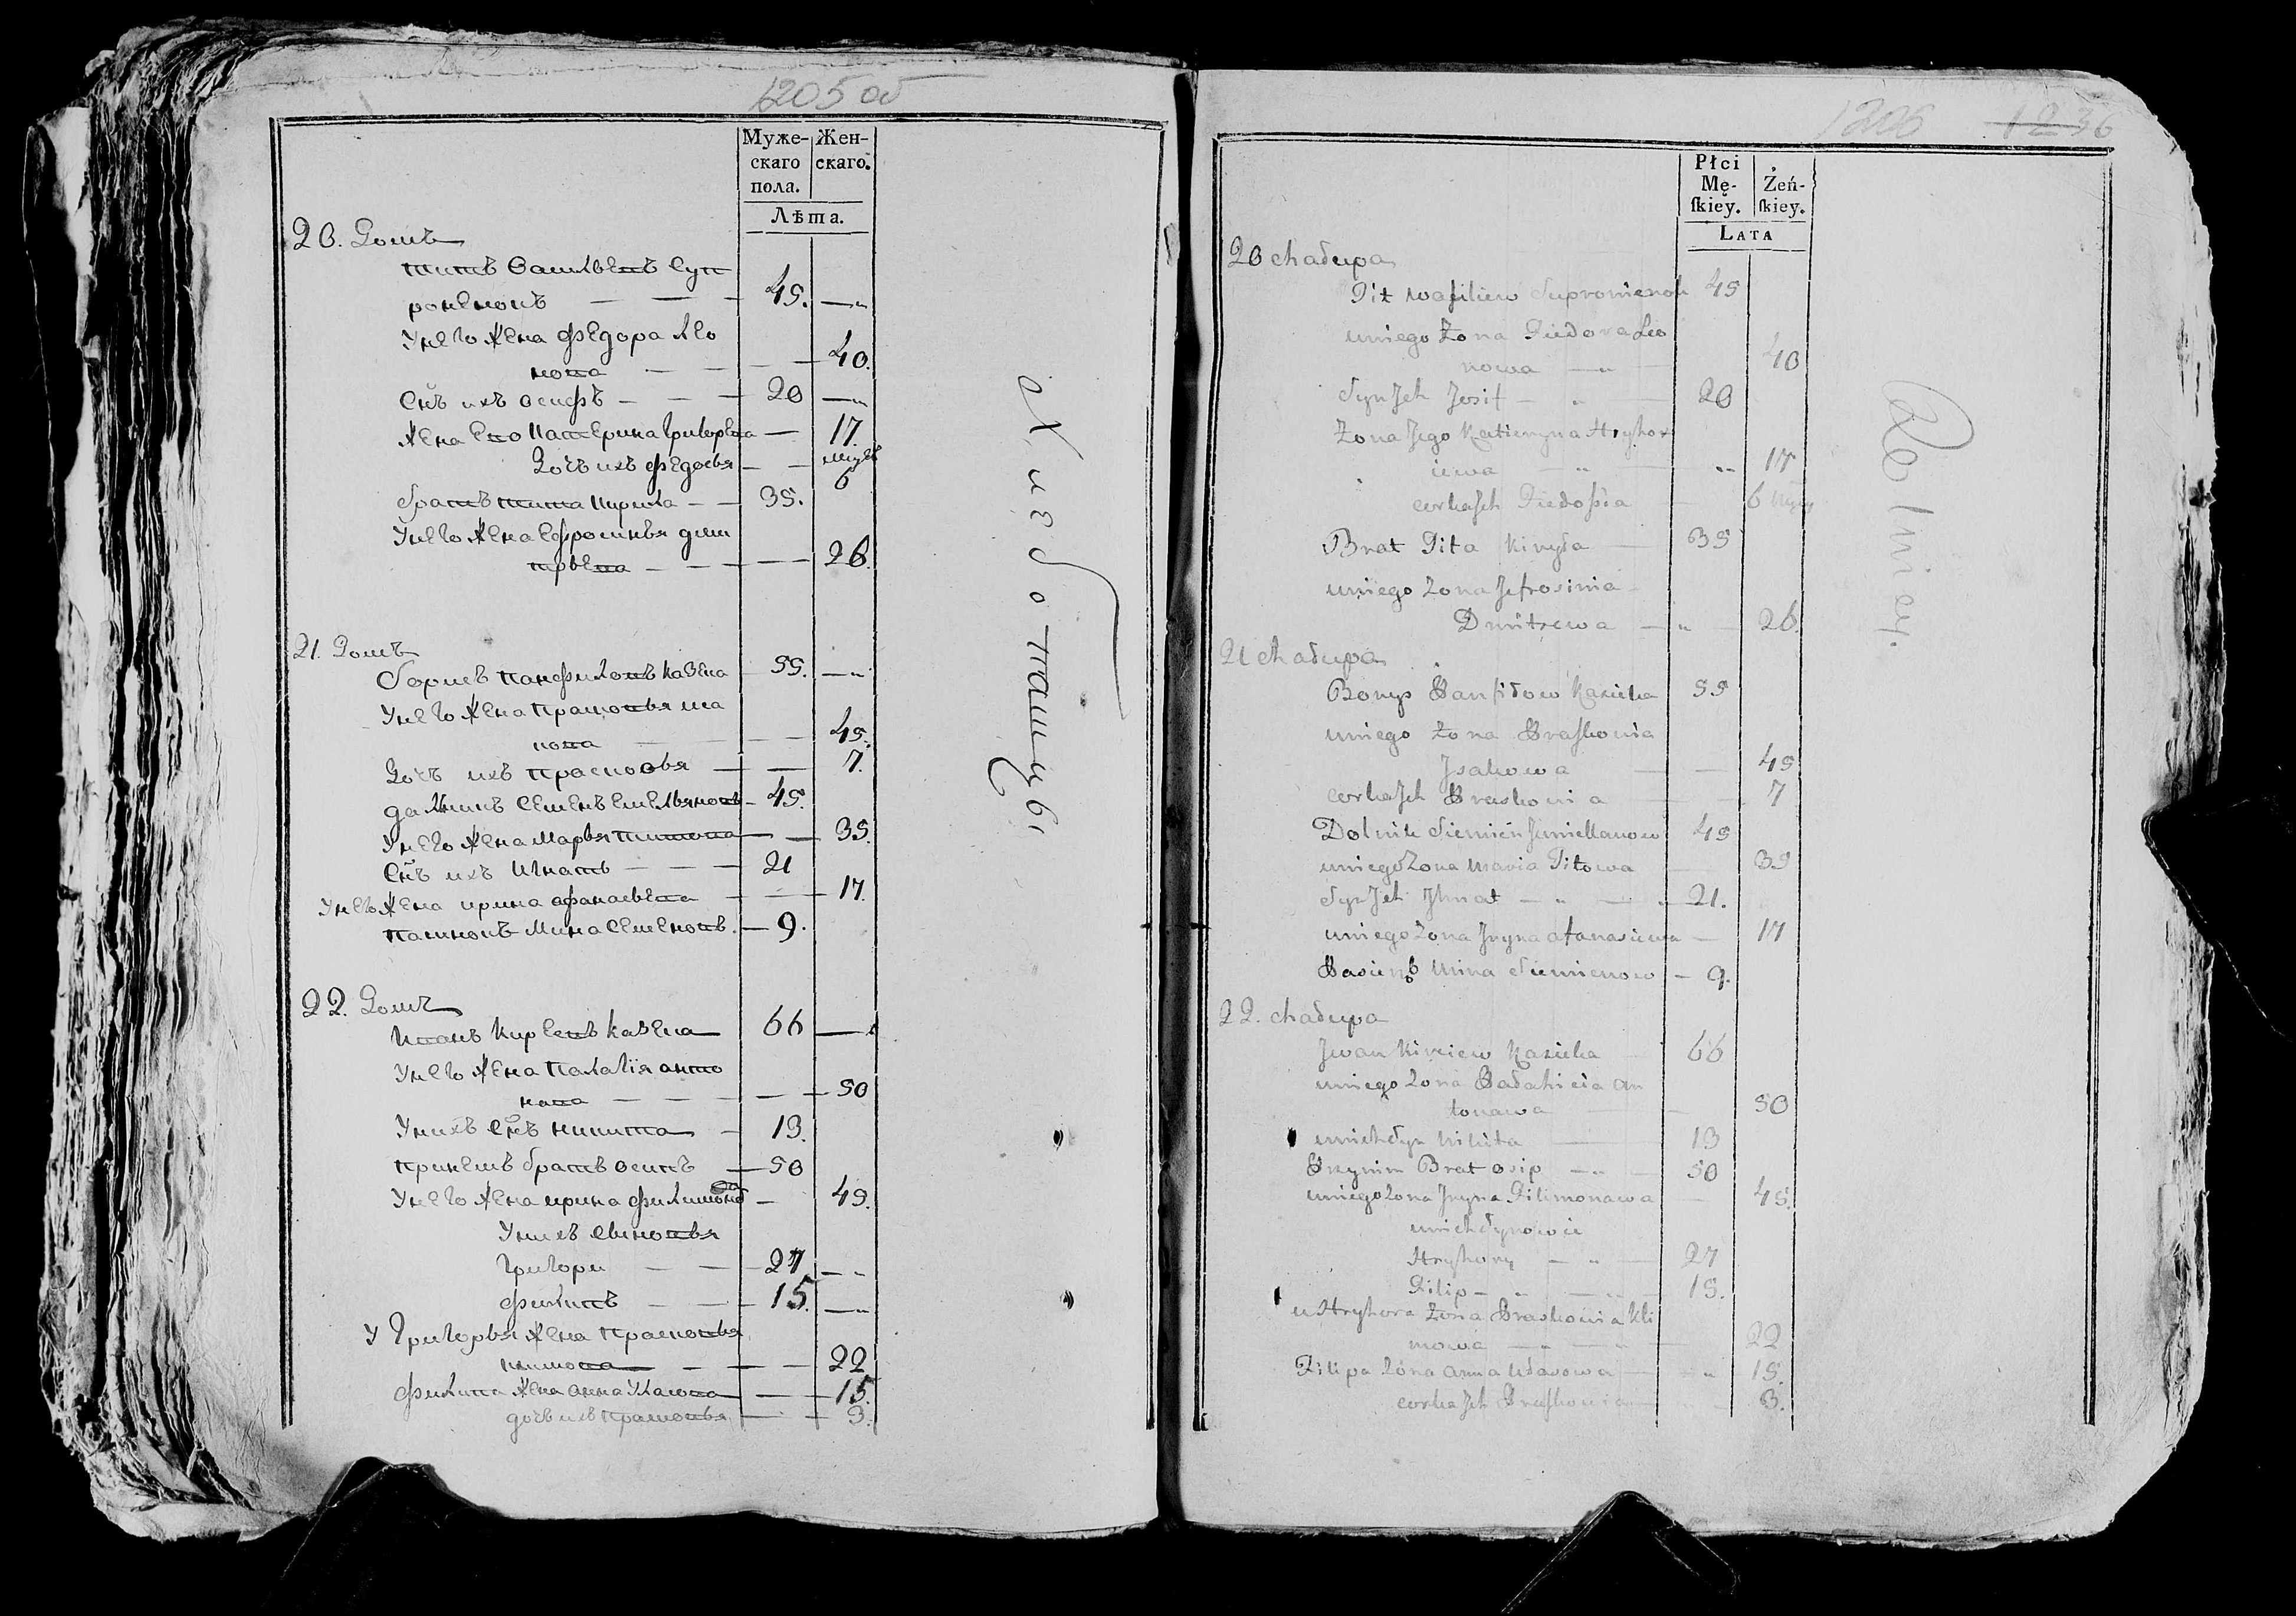 1205 об
Муже-
скаго
пола.
Жен-
скаго.
Лѣта.
20. Домъ
Титъ Васильевъ Суп
роненокъ — — — 45. —„
У него жена Федора Лео
нова — — — 40.
Снъ ихъ Осифъ — — — 20 —„
Жена Его Катерина Григорева — 17.
Дочь ихъ Федосья — — 6
братъ Тита Кирила — — 35.
У него жена Ефросинья дми
трвева — — — 26.
21. Домъ
Борисъ Панфиловъ Казека 55. —„
У него жена Прасковья иса
кова — — — 45.
Дочь ихъ Прасковья — — 7.
дольникъ Семенъ Емельяновъ — 45.
У него жена Марья Титова — 35.
Снъ ихъ Игнатъ — — — 21
У него жена ирина афанасьева — — 17.
Пасынокъ Мина Семеновъ. — 9.
22. Домъ
Иванъ Киреевъ Казека 66 —
У него жена Палагiя анто
нава — — — — — 50
У нихъ Снъ никита — 13.
принемъ братъ Осипъ — 50
У него жена ирина филимонова — 45.
У нихъ Сыновья
Григори — — — 27 — „
Филипъ — — — 15. —„
У Григорья жена Прасковья
климова — — — 22
Филипа жена анна Уласова — — 15.
дочь ихъ Прасковья — — 3.
Хлѣбопашцы
1206 1236
Płci
Mę-
ſkiey.
Żeń-
ſkiey.
LATA
20 chałupa
Tit Wasiliew Supronienok 45
u niego Żona Fiedora Leo
nowa — „ — 40
Syn Jch Josif — „ — 20
Żona Jego Katieryna Hryhor
iewa „ — „ 17
corka Jch Fiedosia — 6
Brat Tita Kiryła — 35
u niego żona Jefrosinia
Dmitrewa — „ — 26.
21 chałupa
Borys Panfiłow Kazieka 55
u niego Żona Praskowia
Jsakowa — — 45
corka Jch Praskowia — 7
Dolnik Siemień Jemielianow 45
u niego Żona Maria Titowa — 35
Syn Jch Jhnat — „ — 21.
u niego żona Jryna afanasiewa — 17
Mina Siemienow — 9.
22. chałupa
Jwan Kireiew Kazieka — 66
u niego żona Pałahieia an
tonawa — — 50
u nich Syn Nikita — 13
Przynim Brat Osip — „ — 50
u niego żona Jryna Filimonawa — 45.
u nich Synowie
Hryhory — „ — 27
Filip — „ — 15.
u Hryhora żona Praskowia Kli
mowa — „ — „ — 22
Filipa żona anna Ułasowa — — „ 15.
corka Jch Praskowia — — 3.